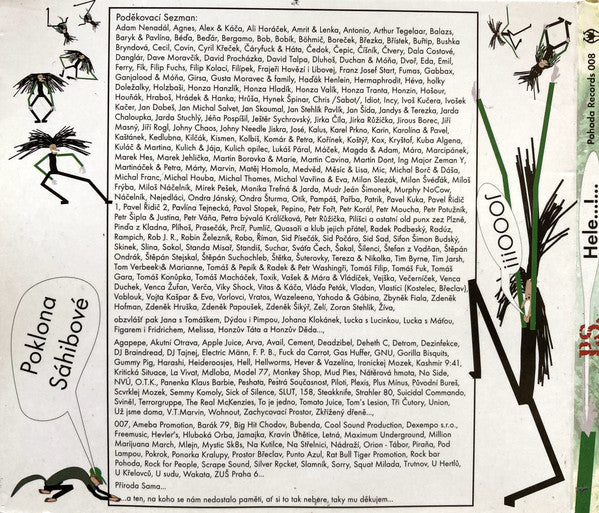 Poděkovací Sezman:
Adam Nenadál, Agnes, Alex & Káča, Ali Horáček, Amrit & Lenka, Antonio, Arthur Tegelaar, Balazs,
Baryk & Pavlína, Béďa, Beďár, Bergamo, Bob, Bobík, Böhmič, Boreček, Březka, Břístek, Buřtip, Bushka
Bryndová, Cecil, Covin, Cyril Křeček, Čáryfuck & Háta, Čedok, Čepic, Číšník, Čtvery, Dala Costové,
Danglár, Dave Moravčík, David Procházka, David Talpa, Dluhoš, Duchan & Móňa, Dvoř, Eda, Emil,
Ferry, Fík, Filip Fuchs, Filip Kolací, Filipek, Frajeři Hovězí i Libovej, Franz Josef Start, Fumas, Gabbax,
Ganjalood & Móňa, Girsa, Gusta Moravec & family, Hoďák Henlein, Hermaphrodit, Héva, holky
Doležalky, Holzbaři, Honza Hanzlík, Honza Hladík, Honza Valík, Honza Tranta, Honzin, Hošour,
Houňák, Hraboš, Hrádek & Hanka, Hrůša, Hynek Špinar, Chris /Sabot/, Idiot, Incy, Ivoš Kučera, Ivošek
Kačer, Jan Dobeš, Jan Michal Salvet, Jan Skaumal, Jan Stehlík Pavlík, Jan Šída, Jandys & Terezka, Jarda
Chaloupka, Jarda Stuchlý, Jéňa Pospíšil, Ještěr Sychrovský, Jirka Číla, Jirka Růžička, Jirous Borec, Jiří
Masný, Jiří Rogl, Johny Chaos, Johny Needle Jiskra, José, Kalus, Karel Prkno, Karin, Karolína & Pavel,
Kaštánek, Kedlubna, Kilčák, Kismen, Kolbiš, Komár & Petra, Kořínek, Koštýř, Kox, Kryštof, Kuba Algena,
Kuláč & Martina, Kulich & Jája, Kulich opilec, Lukáš Páral, Máček, Magda & Adam, Mára, Marcipánek,
Marek Hes, Marek Jehlička, Martin Borovka & Marie, Martin Cavina, Martin Dont, Ing Major Zeman Y,
Martináček & Petra, Márty, Marvin, Matěj Homola, Medvěd, Měsíc & Lisa, Mic, Michal Borč & Dáša,
Michal Franc, Michal Houba, Michal Thomes, Michal Vavřina & Eva, Milan Slezák, Milan Švéďák, Miloš
Frýba, Miloš Náčelník, Mirek Pešek, Monika Trefná & Jarda, Mudr Jeán Šimonek, Murphy NoCow,
Náčelník, Nejedláci, Ondra Jánský, Ondra Šturma, Otík, Pampáš, Paťba, Patrik, Pavel Kuka, Pavel Řidič
1, Pavel Řidič 2, Pavlína Tejnecká, Pavol Stopek, Pepino, Petr Fořt, Petr Korál, Petr Moucha, Petr Potužník,
Petr Šípla & Justina, Petr Váňa, Petra bývalá Králíčková, Petr Růžička, Pilišci a ostatní old punx zez Plzně,
Pinďa z Kladna, Plihoš, Prasečák, Prcíř, Pumlič, Quasaři a klub jejich přátel, Radek Podbeský, Radúz,
Rampich, Rob J. R., Robin Železník, Robo, Říman, Sid Písečák, Sid Počáro, Sid Sad, Sifon Šimon Budský,
Skinek, Slina, Sokol, Standa Misař, Standíš, Suchar, Sváťa Čech, Šakal, Šílenci, Štefan z Vodňan, Štěpán
Ondrák, Štěpán Stejskal, Štěpán Suchochleb, Štětka, Šuterovky, Tereza & Nikolka, Tim Byrne, Tim Jarsh,
Tom Verbeek & Marianne, Tomáš & Pepík & Radek & Petr Washingři, Tomáš Filip, Tomáš Fuk, Tomáš
Gara, Tomáš Konůpka, Tomáš Machäček, Toxik, Vašek & Mára & Vláďíček, Vejška, Večerníček, Venca
Duchek, Venca Žufan, Verča, Viky Shock, Vitas & Káča, Vláďa Peták, Vladan, Vlastíci (Kostelec, Břeclav),
Voblouk, Vojta Kašpar & Eva, Vorlovci, Vratos, Wazeleena, Yahoda & Gábina, Zbyněk Fiala, Zdeněk
Hofman, Zdeněk Hruška, Zdeněk Papoušek, Zdeněk Šikýř, Zelí, Zoran Stehlík, Živa,
obzvlášť pak Jana s Tomáškem, Dýdou i Pimpou, Johana Klokánek, Lucka s Lucinkou, Lucka s Máťou,
Figarem i Fridrichem, Melissa, Honzův Táta a Honzův Děda...,
Agapepe, Akutní Otrava, Apple Juice, Arva, Avail, Cement, Deadzibel, Deheth C, Detrom, Dezinfekce,
DJ Braindread, DJ Tajnej, Electric Männ, F. P. B., Fuck da Carrot, Gas Huffer, GNU, Gorilla Bisquits,
Gummy Pig, Harashi, Heideroosjes, Hell, Hellworms, Hever & Vazelína, Ironickej Mozek, Kashmir 9:41,
Kritická Situace, La Vivat, Mdloba, Model 77, Monkey Shop, Mud Pies, Nátěrová hmota, No Side,
NVÚ, O.T.K., Panenka Klaus Barbie, Peshata, Pestrá Současnost, Piloti, Plexis, Plus Minus, Původní Bureš,
Scvrklej Mozek, Semmy Komoly, Sick of Silence, SLUT, 158, Steaknife, Strahler 80, Suicidal Commando,
Svinčl, Terrorgruppe, The Real McKenzies, To je jedno, Tomato Juice, Tom's Lesion, Tři Čutory, Union,
Už jsme doma, V.T.Marvin, Wohnout, Zachycovací Prostor, Zkřížený dřené...,
007, Ameba Promotion, Barák 79, Big Hit Chodov, Bubenda, Cool Sound Production, Dexempo s.r.o.,
Freemusic, Hevler's, Hluboká Orba, Jamajka, Kravín Unětice, Letná, Maximum Underground, Million
Marijuana March, Mlejn, Mystic Sk8s, Na Kutilce, Na Střelnici, Nádraží, Orion - Tábor, Piraňa, Pod
Lampou, Pokrok, Ponorka Kralupy, Prostor Břeclav, Punto Azul, Rat Bull Tiger Promotion, Rock bar
Pohoda, Rock for People, Scrape Sound, Silver Rocket, Slamník, Sorry, Squat Milada, Trutnov, U Hertlů,
U Křelovců, U sudu, Wakata, ZUŠ Praha 6...
Příroda Sama...
...a ten, na koho se nám nedostalo paměti, ať si to tak nebere, taky mu děkujem...
Poklona
Sáhibové
jiiiOOOOJ
Pohoda Records 008
Hele...!....
P.S.